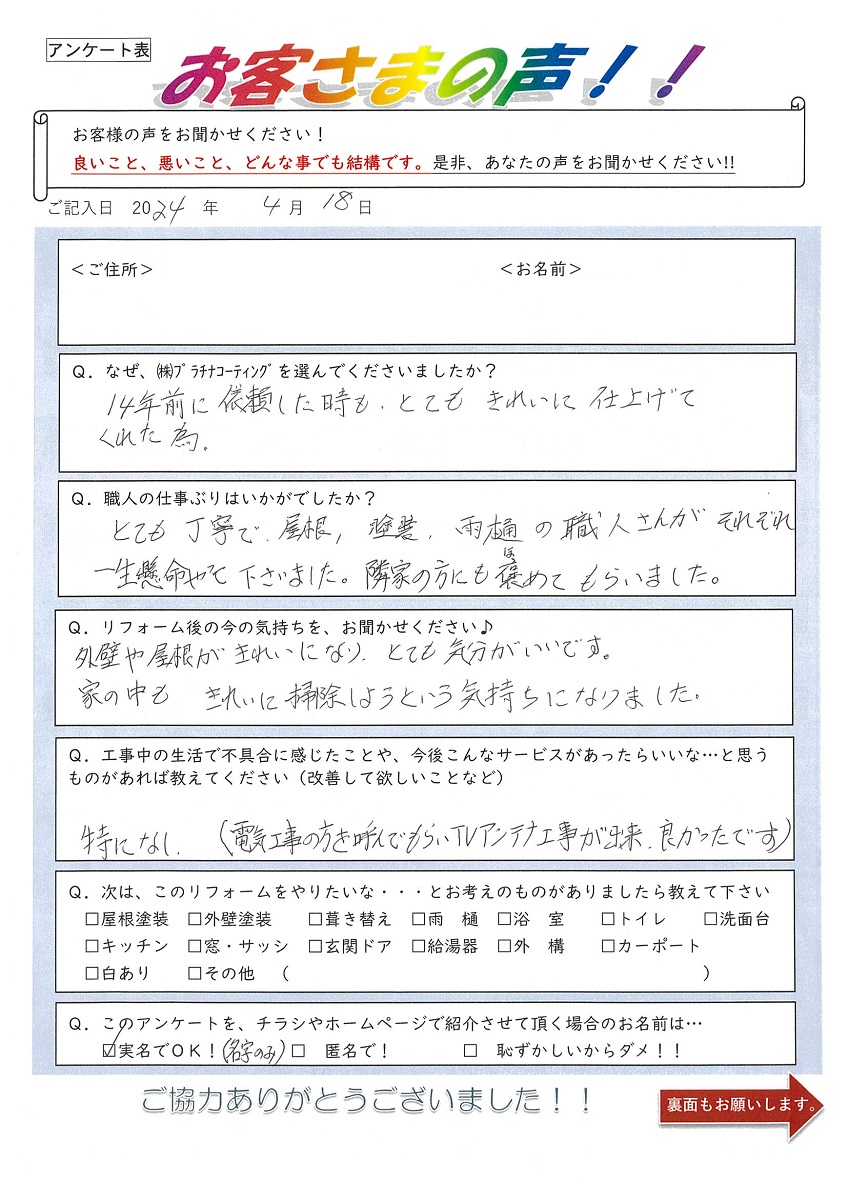 アンケート表
お客さまの声！！
お客様の声をお聞かせください！
良いこと、悪いこと、どんな事でも結構です。是非、あなたの声をお聞かせください!!
ご記入日 2024 年 4月 18日
＜ご住所＞ ＜お名前＞
Ｑ．なぜ、㈱ﾌﾟﾗﾁﾅｺｰﾃｨﾝｸﾞを選んでくださいましたか？
14年前に依頼した時も、とても きれいに 仕上げて
くれた為。
Ｑ．職人の仕事ぶりはいかがでしたか？
とても 丁寧で、屋根、塗装、雨樋の職人さんが それぞれ
一生懸命やって下さいました。隣家の方にも褒めてもらいました。
ほ
Ｑ．リフォーム後の今の気持ちを、お聞かせください♪
外壁や屋根が きれいになり、とても 気分がいいです。
家の中も きれいに掃除しようという気持ちになりました。
Ｑ．工事中の生活で不具合に感じたことや、今後こんなサービスがあったらいいな…と思う
ものがあれば教えてください（改善して欲しいことなど）
特になし、（電気工事の方を呼んでもらいTVアンテナ工事が出来、良かったです）
Ｑ．次は、このリフォームをやりたいな・・・とお考えのものがありましたら教えて下さい
□屋根塗装 □外壁塗装 □葺き替え □雨 樋 □浴 室 □トイレ □洗面台
□キッチン □窓・サッシ □玄関ドア □給湯器 □外 構 □カーポート
□白あり □その他 （ ）
Ｑ．このアンケートを、チラシやホームページで紹介させて頂く場合のお名前は…
☑実名でＯＫ！（名字のみ） □ 匿名で！ □ 恥ずかしいからダメ！！
ご協力ありがとうございました！！
裏面もお願いします。